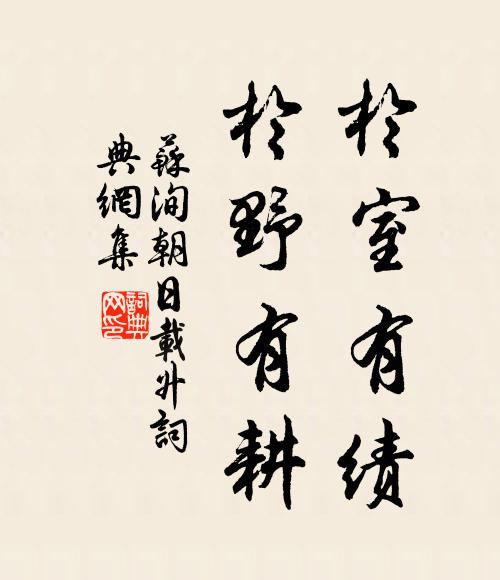 於室有績
於野有耕
蘇洵朝日載外詞
典網集
詞典网印